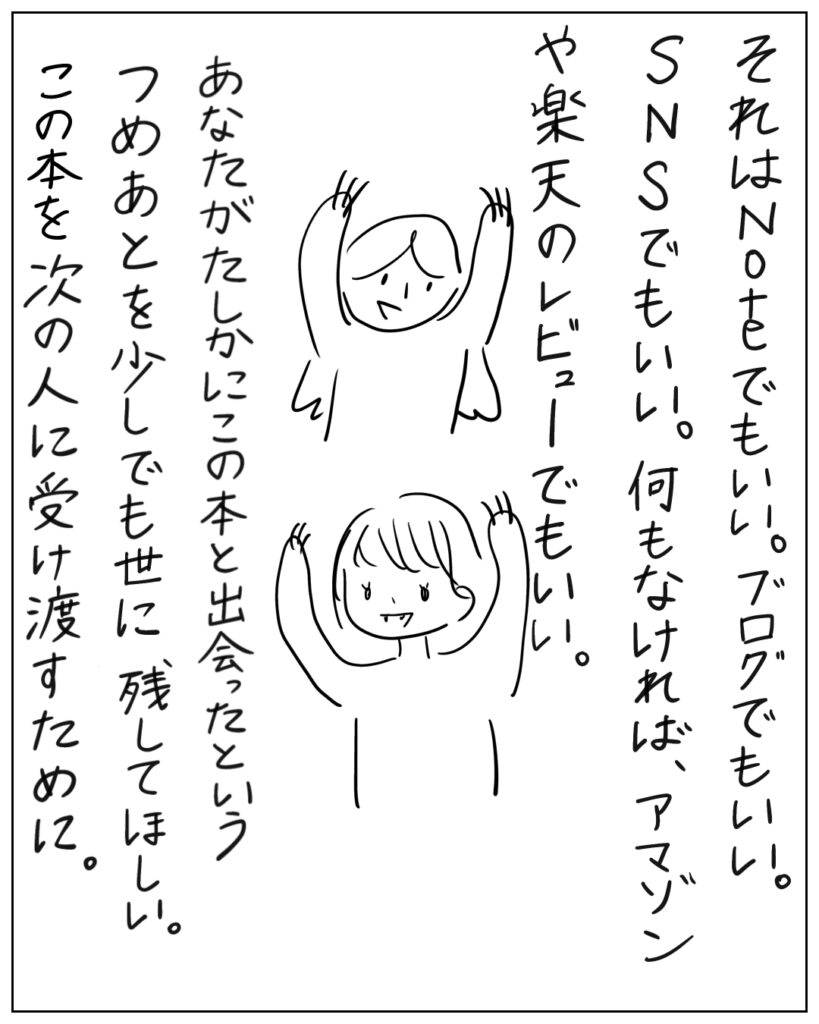 それはNoteでもいい。ブログでもいい。
SNSでもいい。何もなければ、アマゾン
や楽天のレビューでもいい。
あなたがたしかにこの本と出会ったという
つめあとを少しでも世に残してほしい。
この本を次の人に受け渡すために。